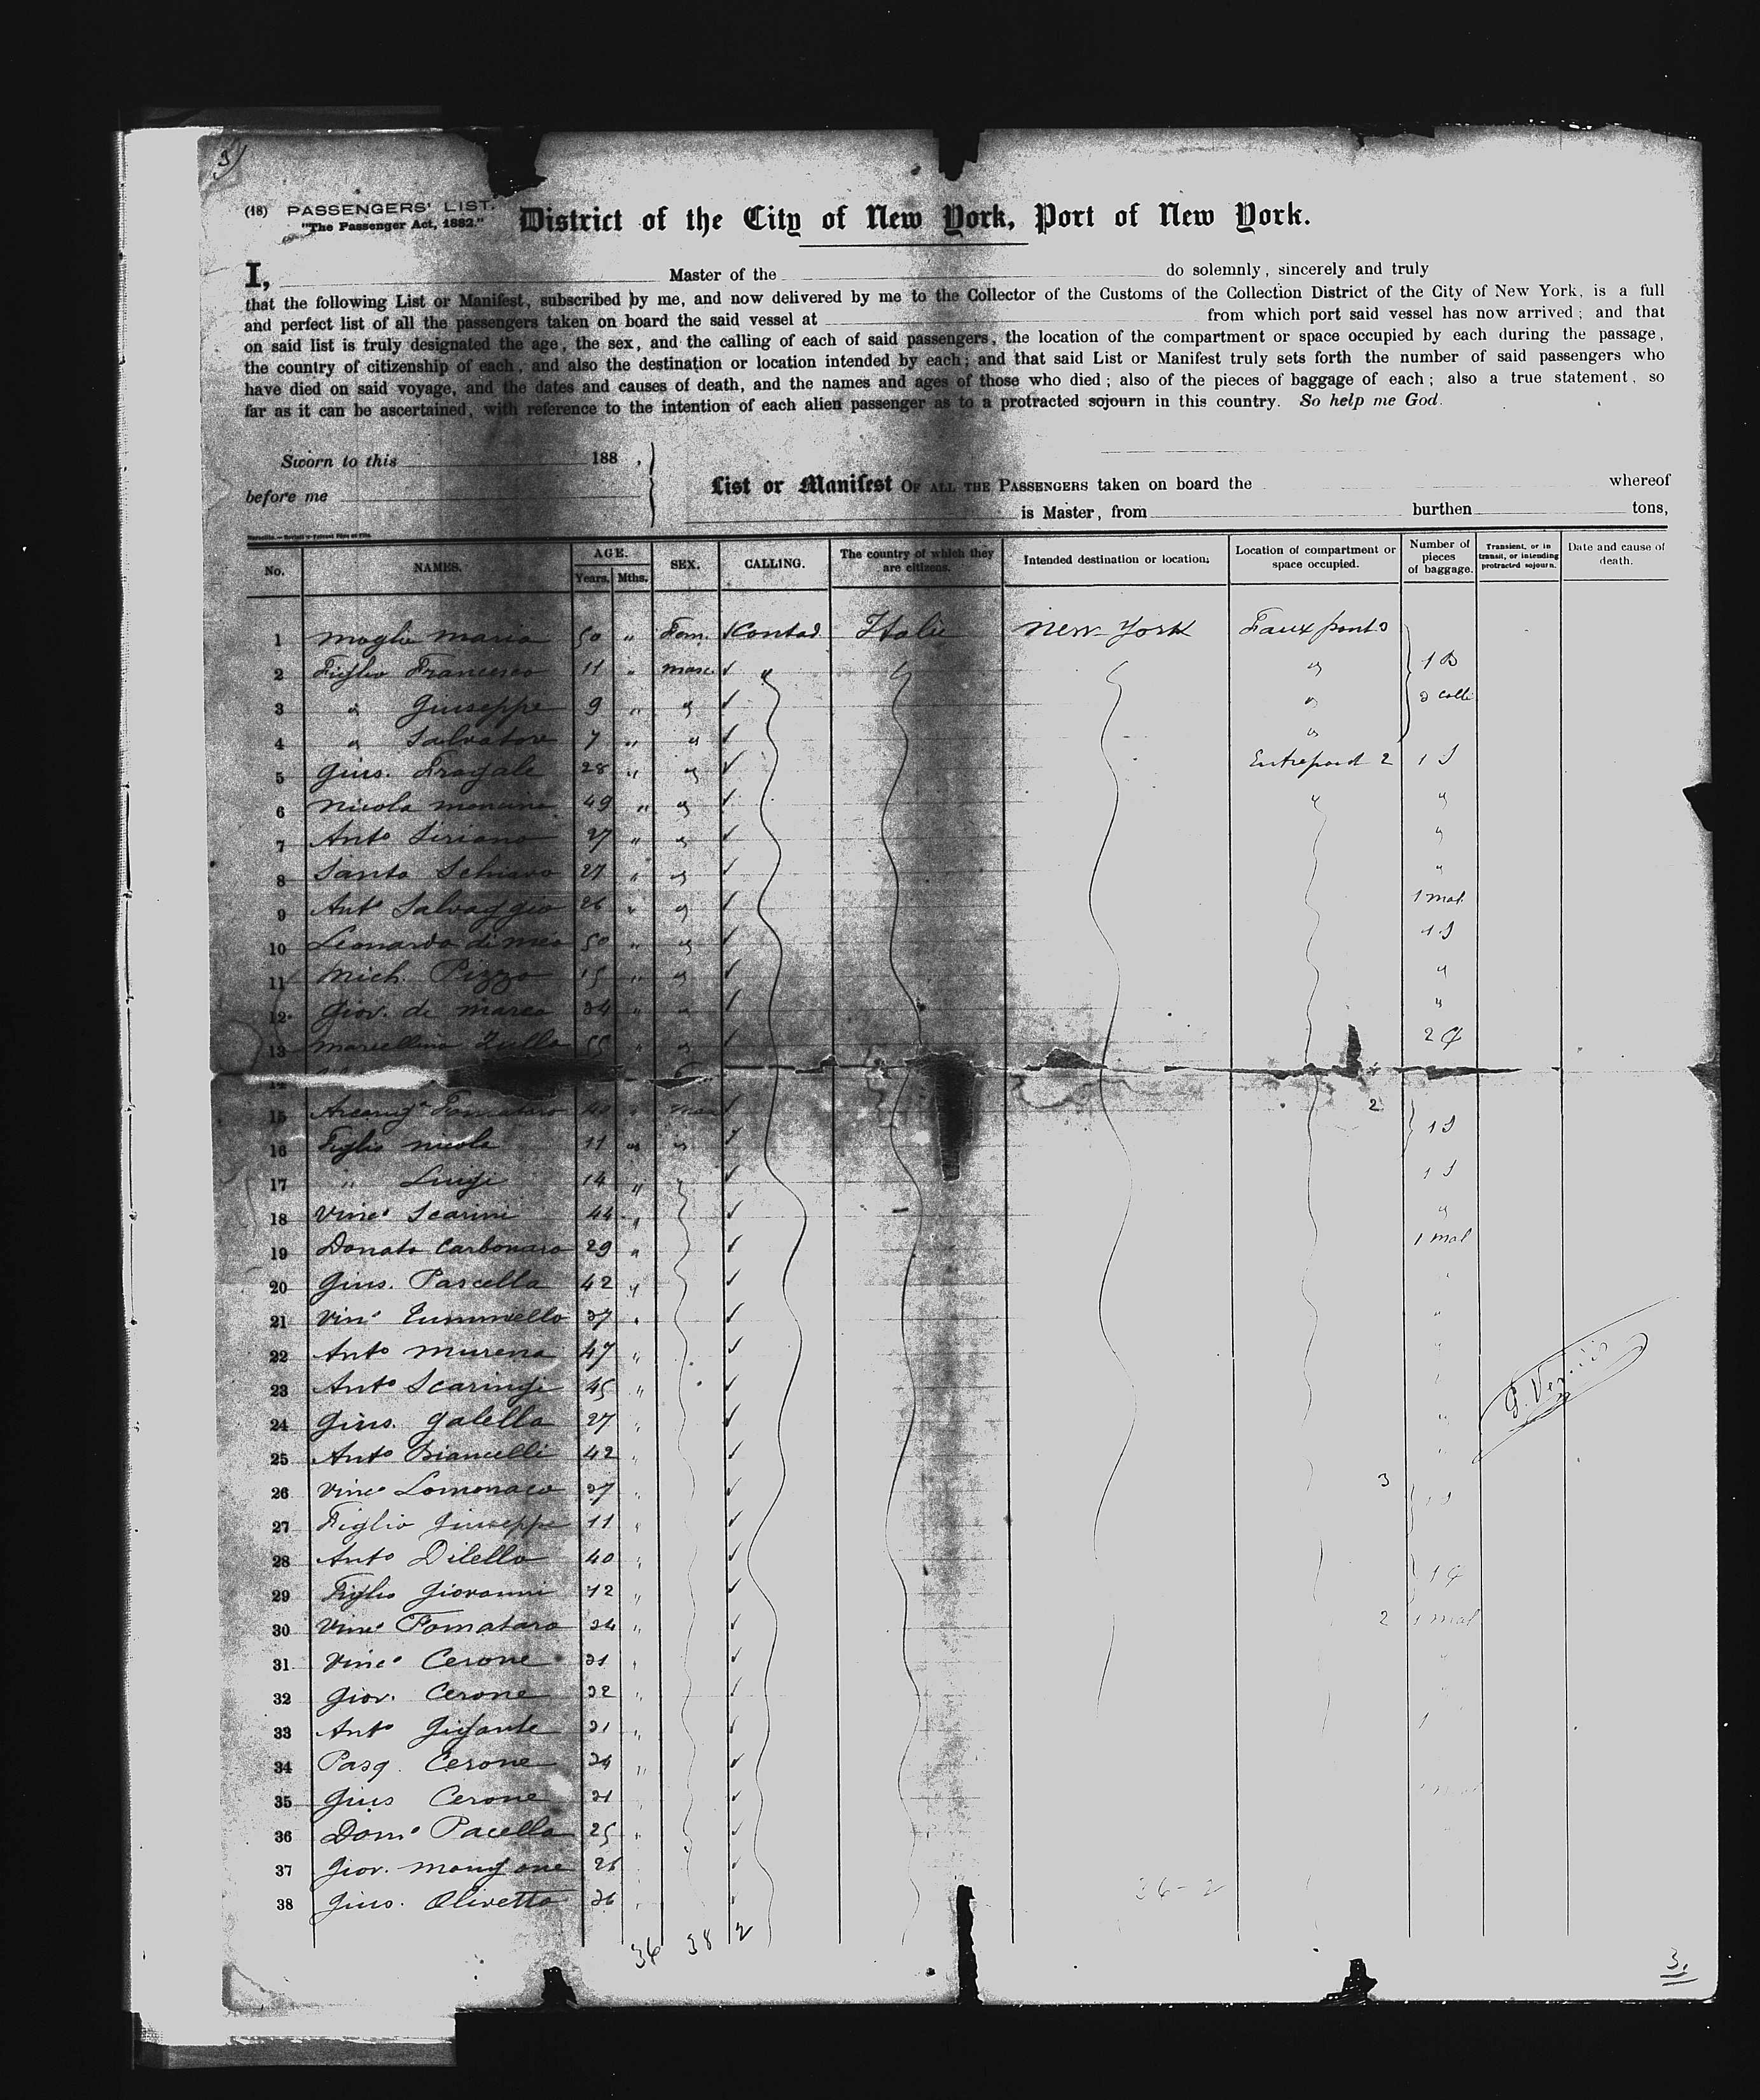 3)
(18) PASSENGERS' LIST.
"The Passenger Act, 1882."
District of the City of New York, Port of New York.
I, Master of the do solemnly, sincerely and truly
that the following List or Manifest, subscribed by me, and now delivered by me to the Collector of the Customs of the Collection District of the City of New York, is a full
and perfect list of all the passengers taken on board the said vessel at from which port said vessel has now arrived; and that
on said list is truly designated the age, the sex, and the calling of each of said passengers, the location of the compartment or space occupied by each during the passage,
the country of citizenship of each, and also the destination or location intended by each; and that said List or Manifest truly sets forth the number of said passengers who
have died on said voyage, and the dates and causes of death, and the names and ages of those who died; also of the pieces of baggage of each; also a true statement, so
far as it can be ascertained, with reference to the intention of each alien passenger as to a protracted sojourn in this country. So help me God.
Sworn to this 188 ,
before me
List or Manifest OF ALL THE PASSENGERS taken on board the whereof
is Master, from burthen tons,
No. NAMES. AGE. Years. Mths. SEX. CALLING. The country of which they are citizens. Intended destination or location; Location of compartment or space occupied. Number of pieces of baggage. Transient, or in transit, or intending protracted sojourn. Date and cause of death.
1 Moglie Maria 50 " Fem. Contad Italie New-York Faux ponts
2 Figlio Francesco 11 " Masc. " " 1 B
3 " Giuseppe 9 " " " 3 colli
4 " Salvatore 7 " " "
5 Gius. Fragale 28 " " Entrepont 2 1 S
6 Nicola Mancino 49 " " " "
7 Anto Siriano 27 " " "
8 Santo Schiavo 27 " " "
9 Anto Salvaggio 26 " " 1 mal
10 Leonardo di Meo 50 " " 1 S
11 Mich. Pizzo 15 " " "
12 Giov. de Marco 34 " " "
13 Marcellino Zullo 55 " " 2
14
15 Tomataro 40 " Mas 2
16 Figlio Nicola 11 " " 1 S
17 " Luigi 14 " 1 S
18 Vinc° Scarini 44 " "
19 Donato Carbonaro 29 " 1 mal
20 Gius. Pascella 42 "
21 Vinc° 37 "
22 Anto Murena 47 "
23 Anto Scaringi 45 "
24 Gius. Galella 27 " "
25 Anto Biancelli 42 "
26 Vinc° Lomonaco 37 " 3 1 S
27 Figlio Giuseppe 11 "
28 Anto Dilello 40 "
29 Figlio Giovanni 12 " 1
30 Vinc° Tomataro 34 " 2 1 mal
31 Vinc° Cerone 31 "
32 Giov. Cerone 32 "
33 Anto Gigante 31 "
34 Pasq. Cerone 34 "
35 Gius Cerone 31
36 Dom° Pacella 25 "
37 Giov. Mangone 26
38 Gius. Olivetto 36
36-2
36 38 2
3.